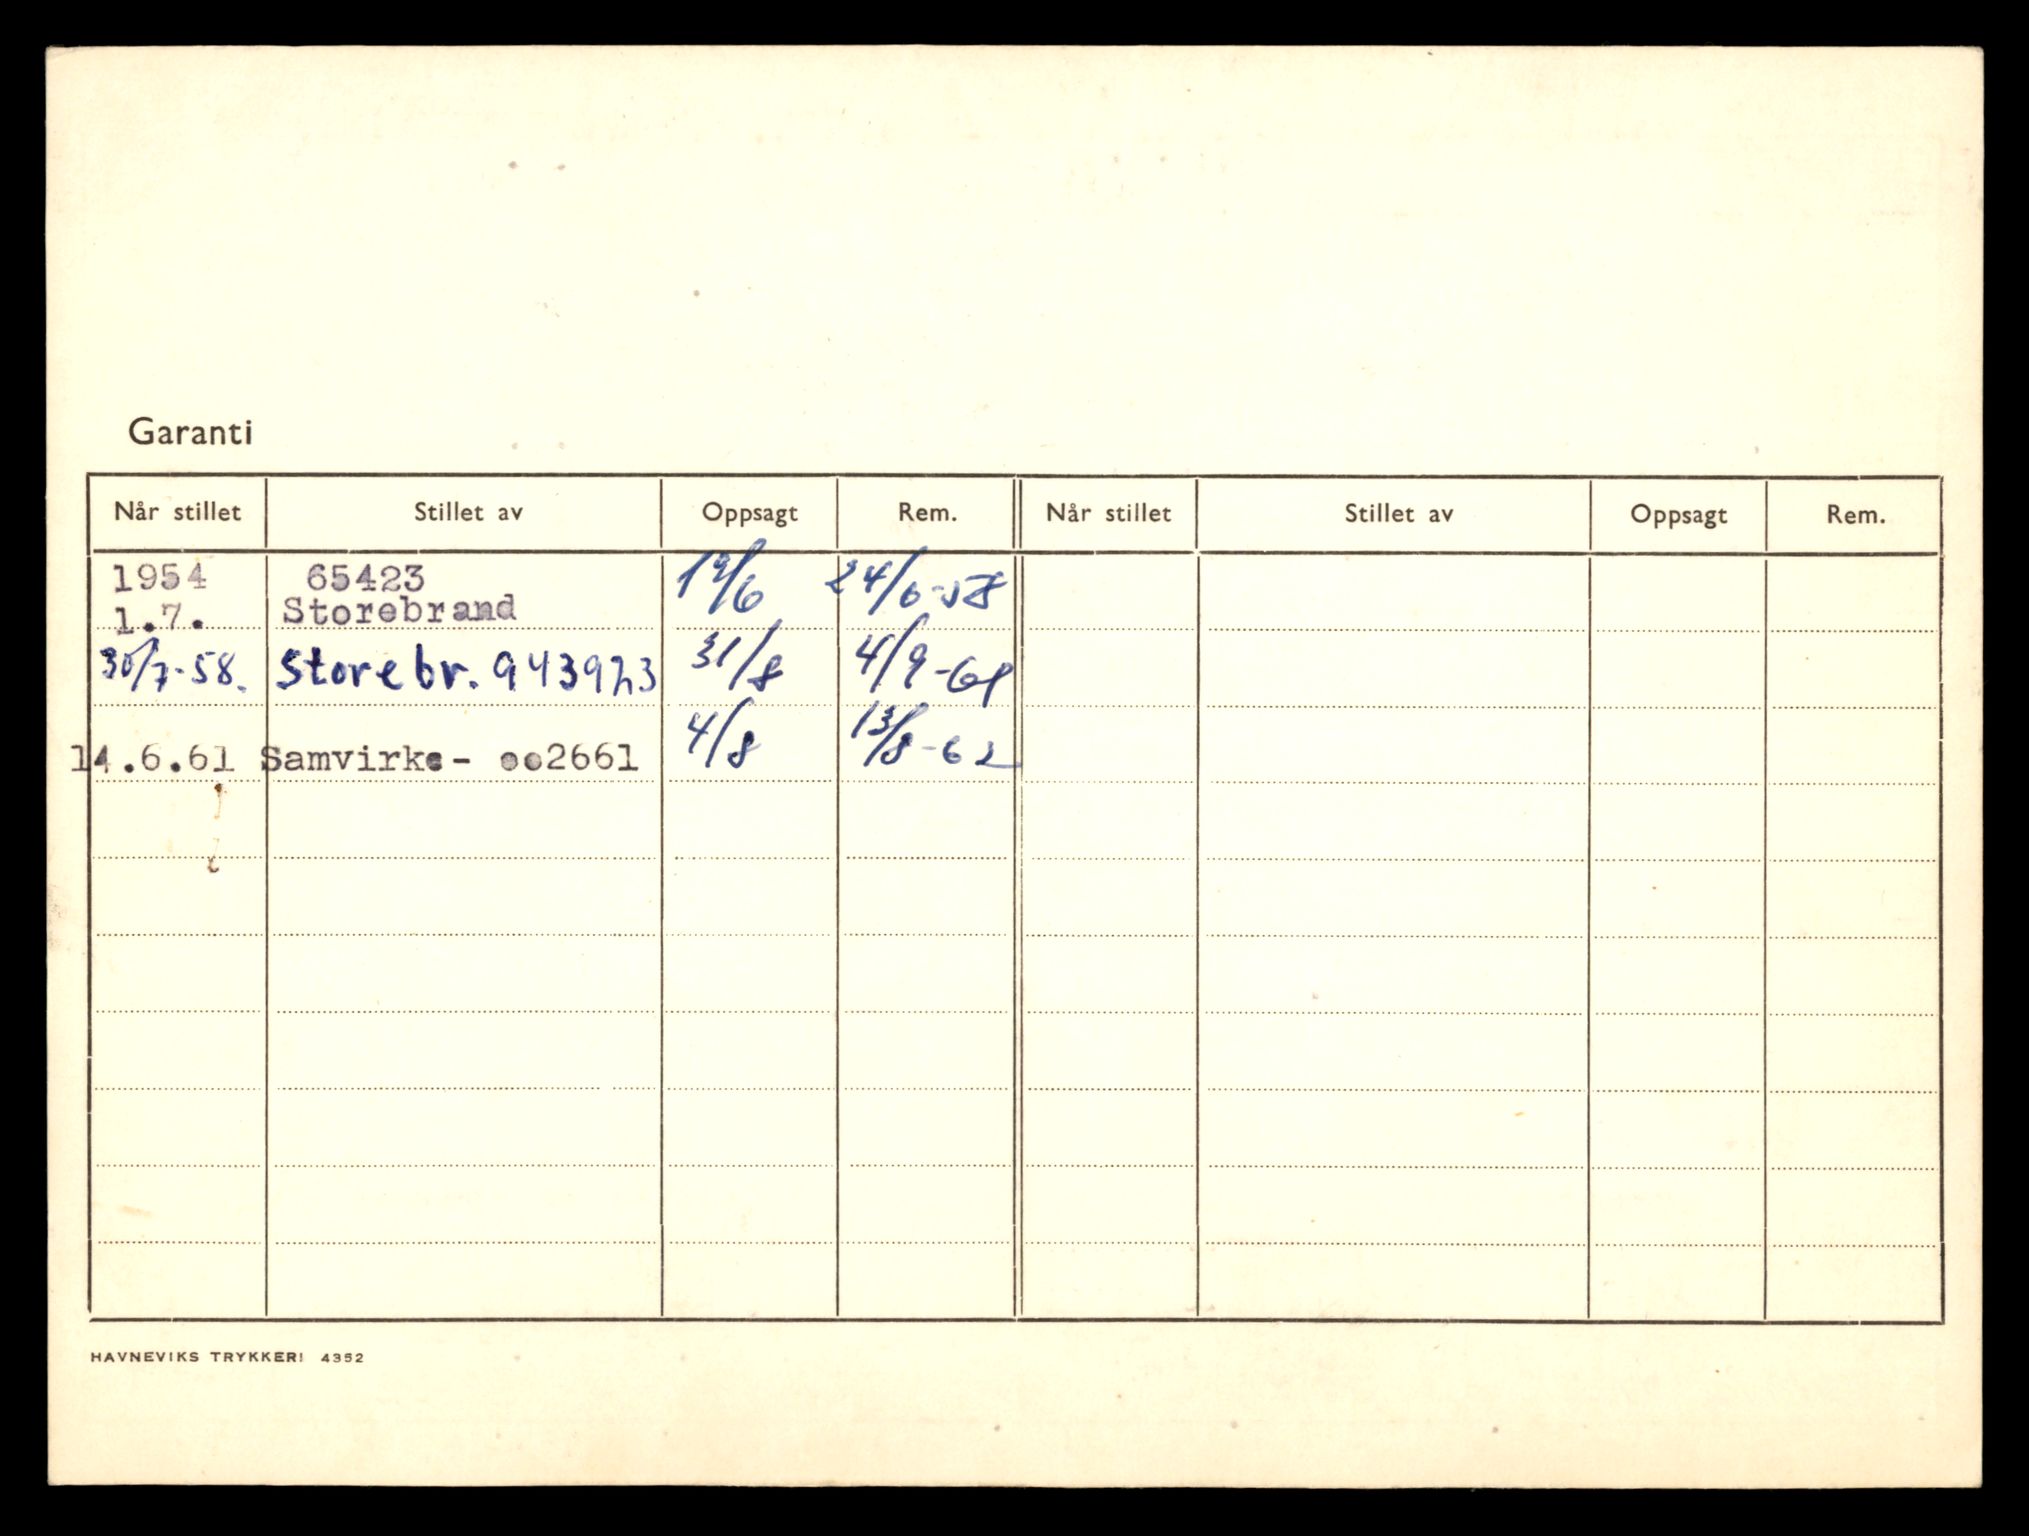 Garanti
Når stillet Stillet av Oppsagt Rem. Når stillet Stillet av Oppsagt Rem.
1954 65423 19/6 24/6-58
1.7. Storebrand
30/7-58. Storebr. 943923 31/8 4/9-61
14.6.61 Samvirke- oo2661 4/8 13/8-62
HAVNEVIKS TRYKKERI 4352